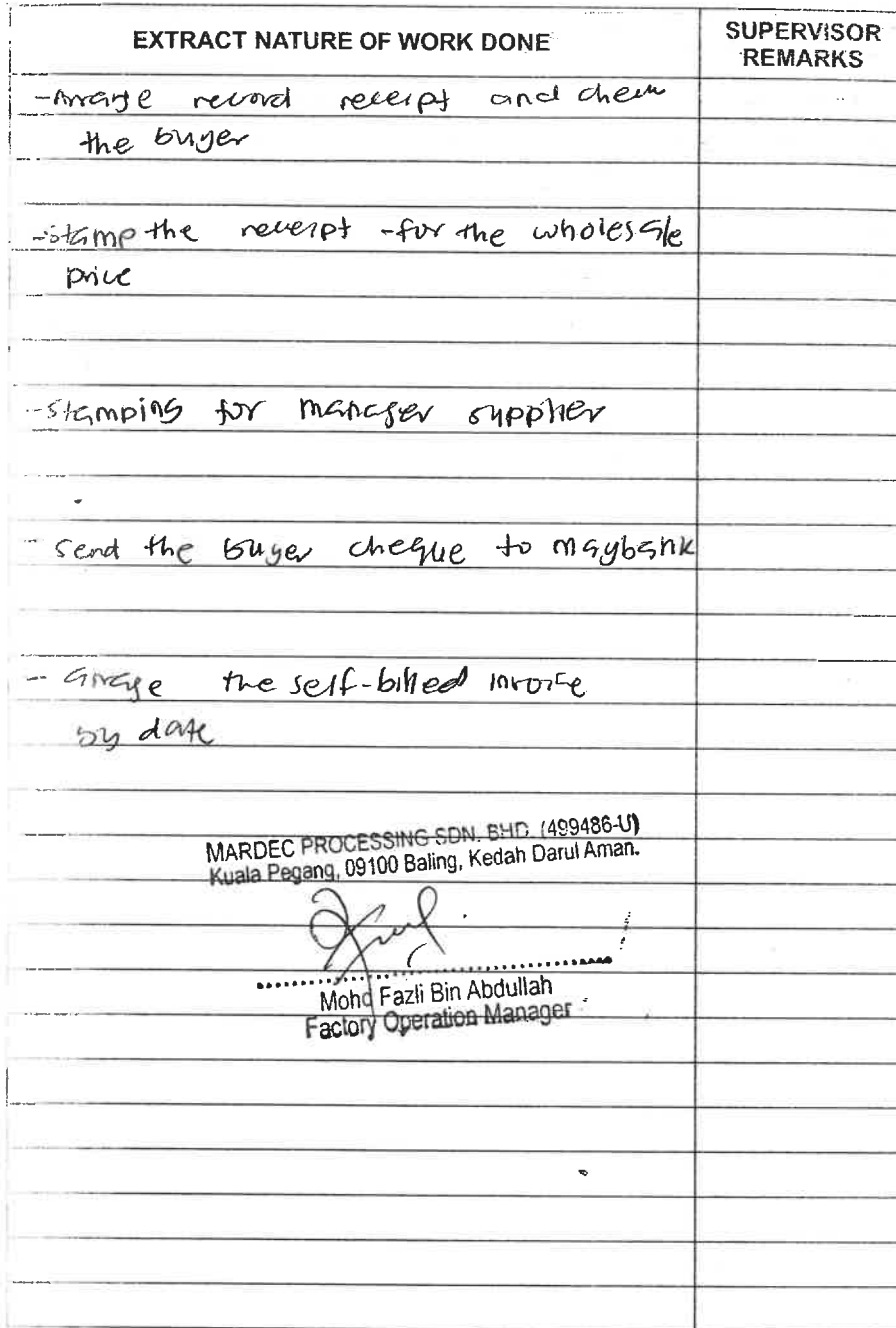 EXTRACT NATURE OF WORK DONE
SUPERVISOR
REMARKS
- Arrange record receipt and check
the buyer
- stamp the receipt - for the wholesale
price
- stamping for manager supplier
- send the buyer cheque to maybank
- arrange the self-billed invoice
by date
MARDEC PROCESSING SDN. BHD. (499486-U)
Kuala Pegang, 09100 Baling, Kedah Darul Aman.
Mohd Fazli Bin Abdullah
Factory Operation Manager